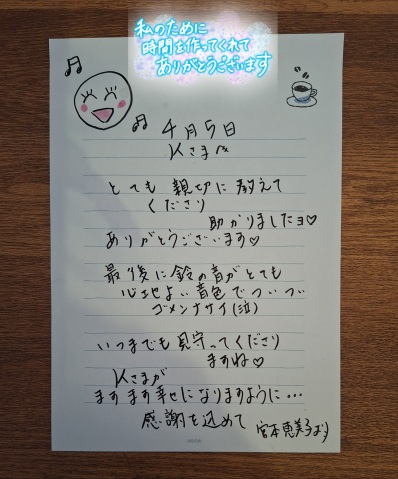 私のために
時間を作ってくれて
ありがとうございます
4月5日
Kさまへ
とても親切に教えて
くださり
助かりましたヨ♡
ありがとうございます♡
最後に鈴の音がとても
心地よい音色でついつい
ゴメンナサイ(泣)
いつまでも見守ってくださり
ますね♡
Kさまが
ますます幸せになりますように…
感謝を込めて
宮本恵美子より